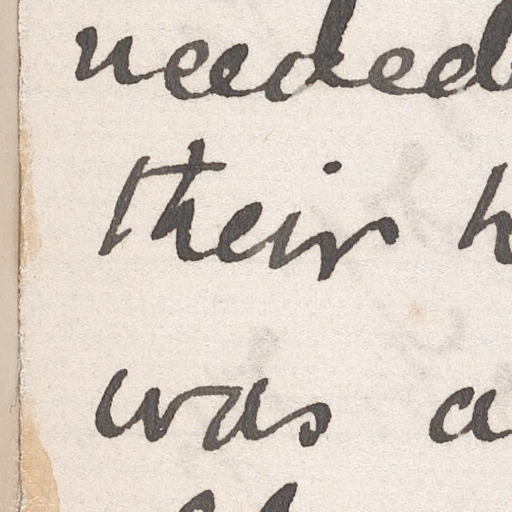 needed
their
was a